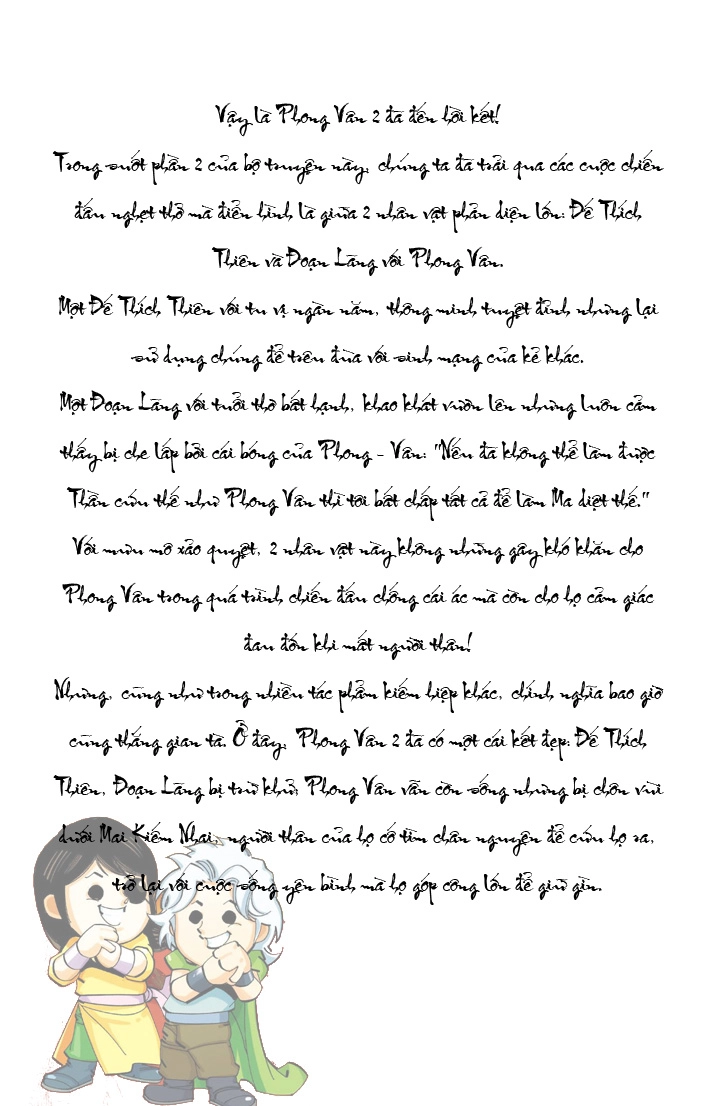 Vậy là Phong Vân 2 đã đến hồi kết!
Trong suốt phần 2 của bộ truyện này, chúng ta đã trải qua các cuộc chiến
đấu nghẹt thở mà điển hình là giữa 2 nhân vật phản diện lớn: Đế Thích
Thiên và Đoạn Lãng với Phong Vân.
Một Đế Thích Thiên với tu vị ngàn năm, thông minh tuyệt đỉnh nhưng lại
sử dụng chúng để trêu đùa với sinh mạng của kẻ khác.
Một Đoạn Lãng với tuổi thơ bất hạnh, khao khát vươn lên nhưng luôn cảm
thấy bị che lấp bởi cái bóng của Phong - Vân: "Nếu đã không thể làm được
Thần cứu thế như Phong Vân thì tôi bất chấp tất cả để làm Ma diệt thế."
Với mưu mô xảo quyệt, 2 nhân vật này không những gây khó khăn cho
Phong Vân trong quá trình chiến đấu chống cái ác mà còn cho họ cảm giác
đau đớn khi mất người thân!
Nhưng, cũng như trong nhiều tác phẩm kiếm hiệp khác, chính nghĩa bao giờ
cũng thắng gian tà. Ở đây, Phong Vân 2 đã có một cái kết đẹp: Đế Thích
Thiên, Đoạn Lãng bị trừ khử; Phong Vân vẫn còn sống nhưng bị chôn vùi
dưới Mai Kiếm Nhai, người thân của họ cố tìm chân nguyên để cứu họ ra,
trở lại với cuộc sống yên bình mà họ góp công lớn để giữ gìn.